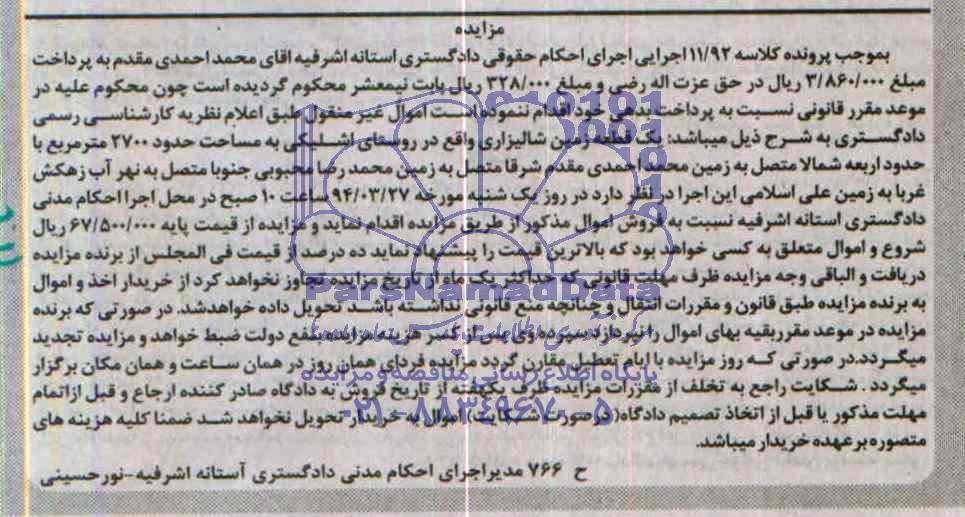 مزایده
بموجب پرونده کلاسه ۱۱/۹۲ اجرایی اجرای احکام حقوقی دادگستری استانه اشرفیه اقای محمد احمدی مقدم به پرداخت
مبلغ ۳/۸۶۰/۰۰۰ ریال در حق عزت اله رضی و مبلغ ۳۲۸/۰۰۰ ریال بابت نیمعشر محکوم گردیده است چون محکوم علیه در
موعد مقرر قانونی نسبت به پرداخت بدهی خود اقدام ننموده است اموال غیر منقول طبق اعلام نظریه کارشناسی رسمی
دادگستری به شرح ذیل میباشد: یک قطعه زمین شالیزاری واقع در روستای اشلیکی به مساحت حدود ۲۷۰۰ مترمربع با
حدود اربعه شمالا متصل به زمین محمد احمدی مقدم شرقا متصل به زمین محمد رضا محبوبی جنوبا متصل به نهر آب زهکش
غربا به زمین علی اسلامی این اجرا در نظر دارد در روز یک شنبه مورخه ۹۴/۰۳/۲۷ ساعت ۱۰ صبح در محل اجرا احکام مدنی
دادگستری استانه اشرفیه نسبت به فروش اموال مذکور از طریق مزایده اقدام نماید و مزایده از قیمت پایه ۶۷/۵۰۰/۰۰۰ ریال
شروع و اموال متعلق به کسی خواهد بود که بالاترین قیمت را پیشنهاد نماید ده درصد از قیمت فی المجلس از برنده مزایده
دریافت و الباقی وجه مزایده ظرف مهلت قانونی که حداکثر یک ماه از تاریخ مزایده تجاوز نخواهد کرد از خریدار اخذ و اموال
به برنده مزایده طبق قانون و مقررات انتقال و چنانچه منع قانونی نداشته باشد تحویل داده خواهدشد. در صورتی که برنده
مزایده در موعد مقرربقیه بهای اموال را نپردازد سپرده وی پس از کسر هزینه مزایده بنفع دولت ضبط خواهد و مزایده تجدید
میگردد.در صورتی که روز مزایده با ایام تعطیل مقارن گردد مزایده فردای همان روز در همان ساعت و همان مکان برگزار
میگردد . شکایت راجع به تخلف از مقررات مزایده ظرف یکهفته از تاریخ فروش به دادگاه صادر کننده ارجاع و قبل ازاتمام
مهلت مذکور یا قبل از اتخاذ تصمیم دادگاه(درصورت شکایت) اموال به خریدار تحویل نخواهد شد ضمنا کلیه هزینه های
متصوره برعهده خریدار میباشد.
ح ۷۶۶ مدیراجرای احکام مدنی دادگستری آستانه اشرفیه-نورحسینی
ParsNamadData
پایگاه اطلاع رسانی مناقصه و مزایده
۰۲۱-۸۸۳۴۹۶۷۰-۵